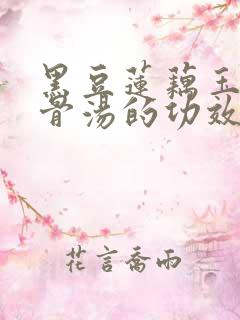 黑豆蓮藕玉
骨湯的功效
花言喬雨